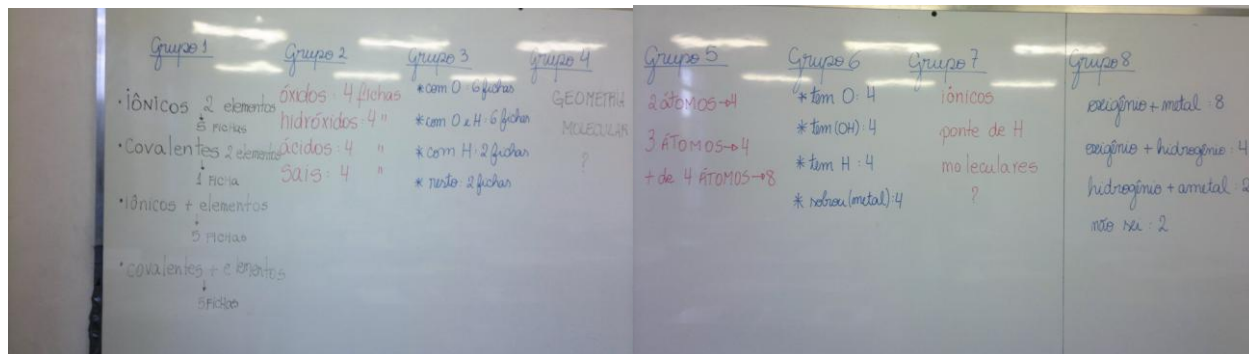 Grupo 1
• iÔNICOS 2 elementos
↓
5 FICHAS
• Covalentes 2 elementos
↓
1 FICHA
• iÔNicos + elementos
↓
5 FICHAS
• covalentes + elementos
↓
5 FICHAS
Grupo 2
óxidos: 4 fichas
hidróxidos: 4 "
ácidos: 4 "
Sais: 4 "
Grupo 3
* com O: 6 fichas
* com O e H: 6 fichas
* com H: 2 fichas
* resto: 2 fichas
Grupo 4
GEOMETRIA
MOLECULAR
?
Grupo 5
2 áTOMOS→4
3 ÁTOMOS→4
+ de 4 ÁTOMOS→8
Grupo 6
* tem O: 4
* tem (OH): 4
* tem H: 4
* sobrou (metal): 4
Grupo 7
iônicos
ponte de H
moleculares
?
Grupo 8
oxigênio + metal: 8
oxigênio + hidrogênio: 4
hidrogênio + ametal: 2
não sei: 2